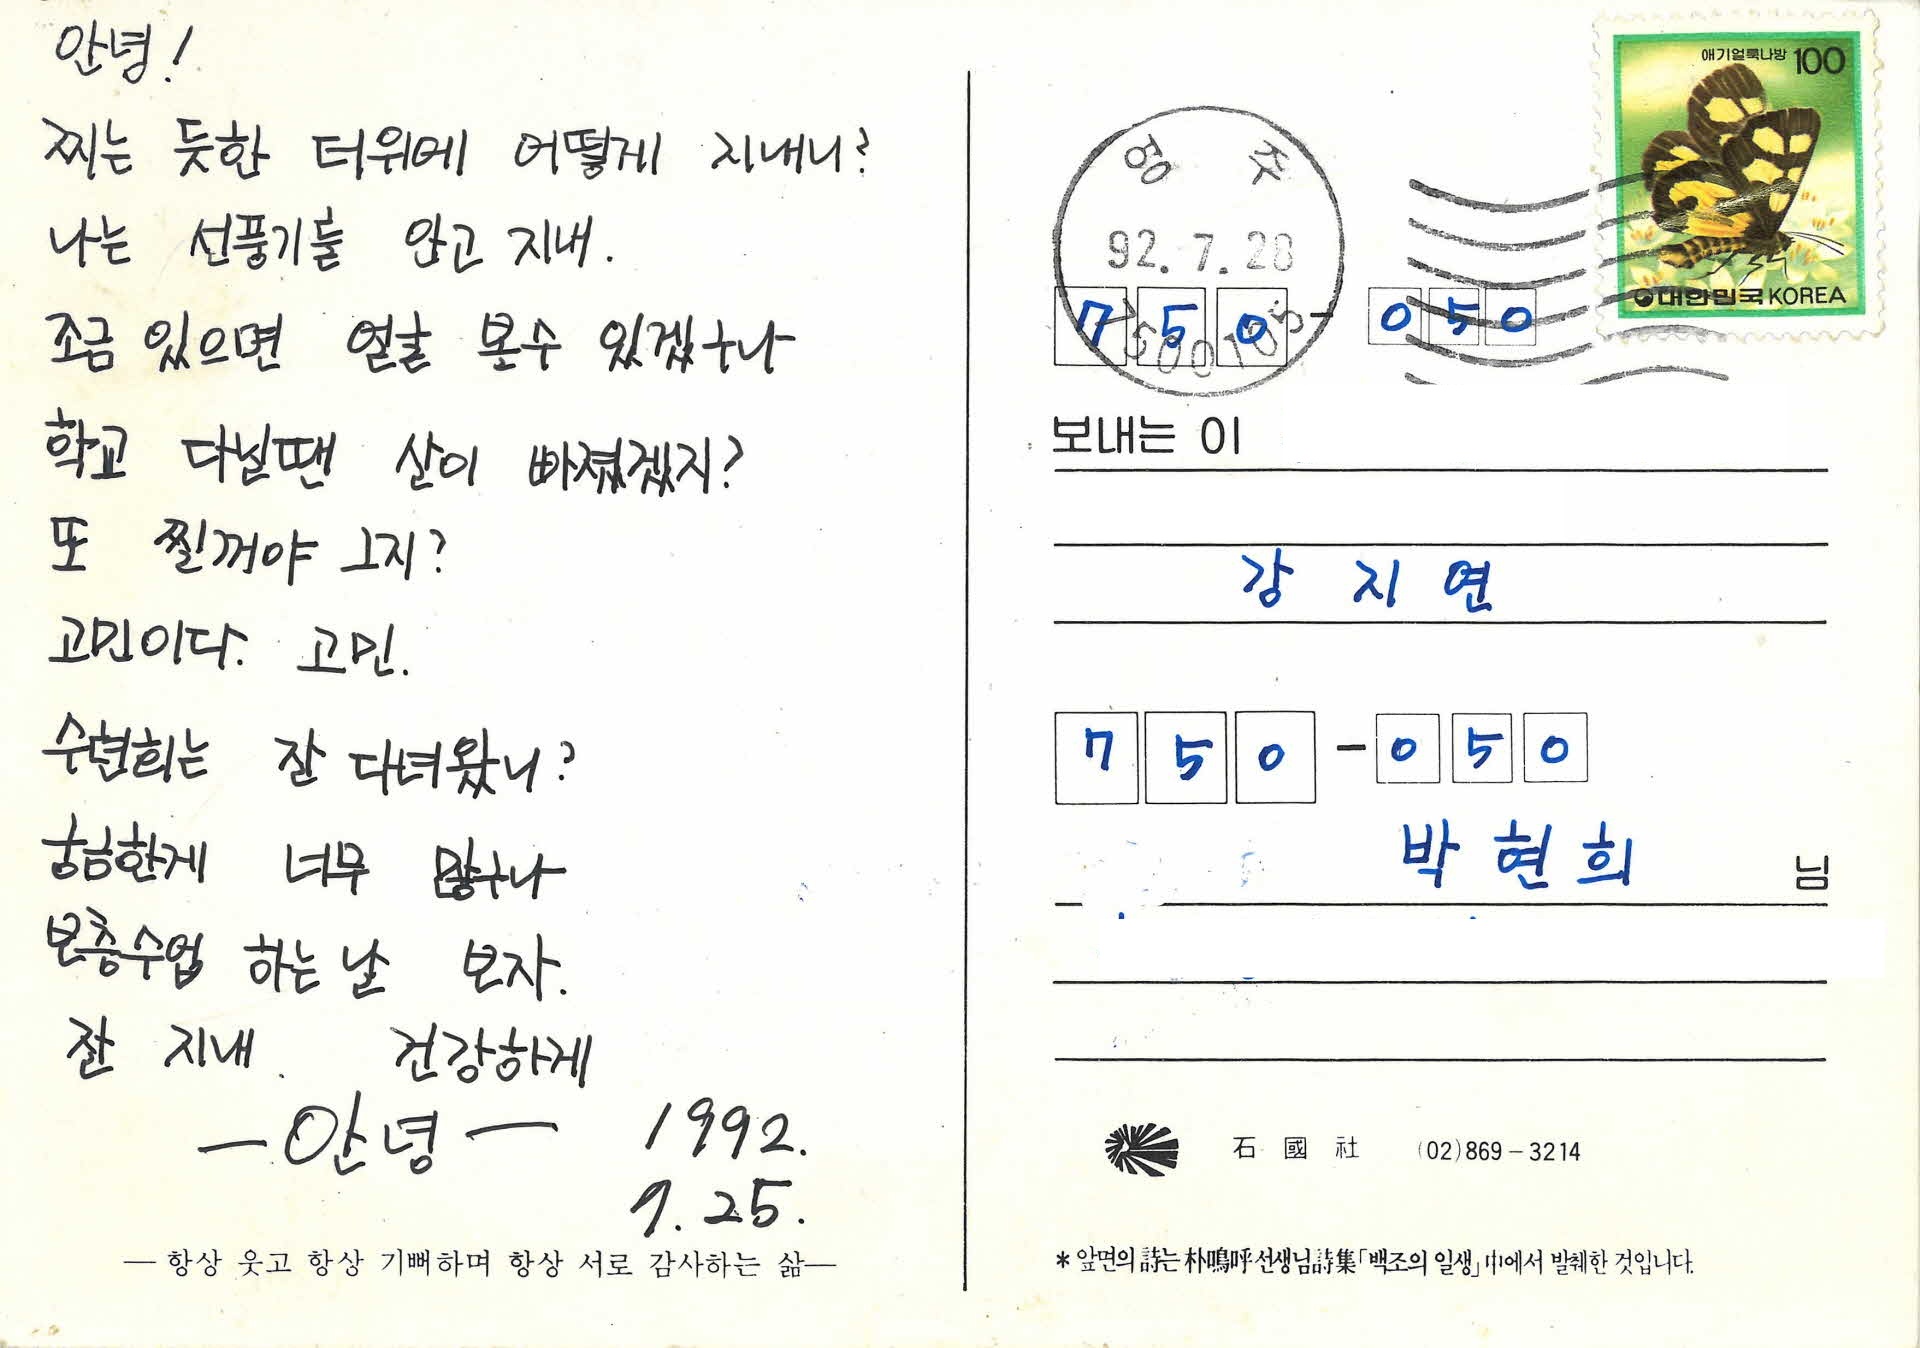 안녕!
찌는 듯한 더위에 어떻게 지내니?
나는 선풍기를 안고 지내.
조금 있으면 얼굴 본수 있겠구나
학교 다닐땐 살이 빠졌겠지?
또 찔꺼야 그지?
고민이다. 고민.
수현희는 잘 다녀왔니?
궁금한게 너무 많구나
보충수업 하는 날 보자.
잘 지내. 건강하게
— 안녕 — 1992.
7. 25.
— 항상 웃고 항상 기뻐하며 항상 서로 감사하는 삶 —
애기얼룩나방 100
대한민국 KOREA
영주
92.7.28
7500105
750-050
보내는 이
강지연
750-050
박현희 님
石國社 (02)869-3214
* 앞면의 詩는 朴鳴呼 선생님 詩集 「백조의 일생」 中에서 발췌한 것입니다.